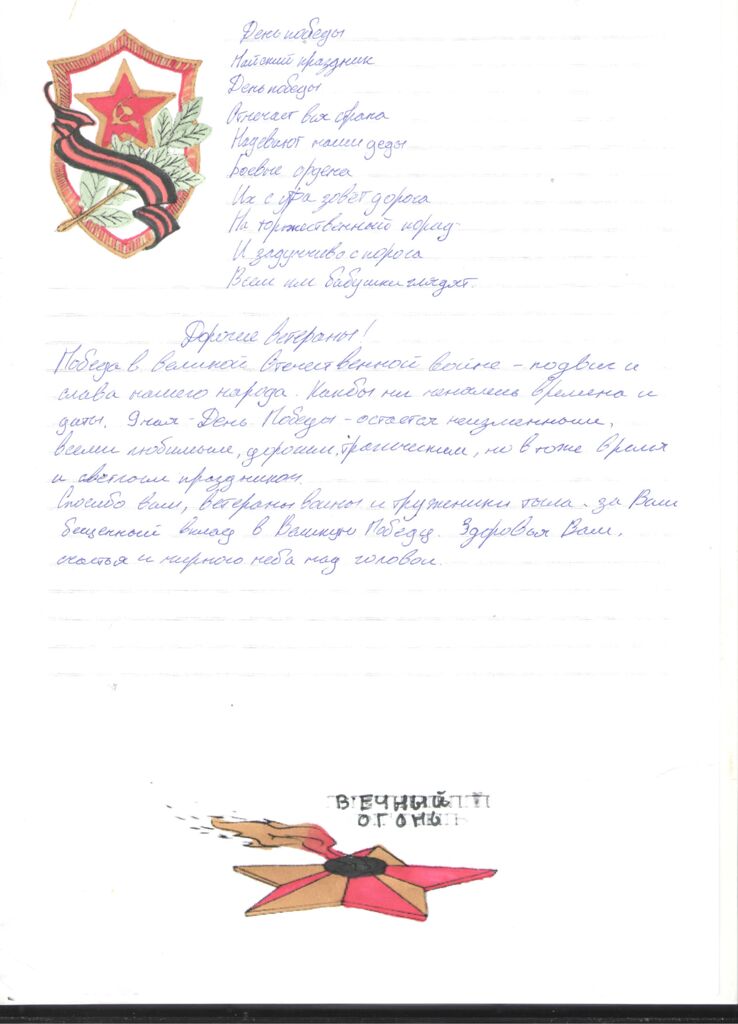 День победы
Майский праздник
День победы
Отмечает вся страна
Надевают наши деды
Боевые ордена
Их с утра зовёт дорога
На торжественный парад
И задумчиво с порога
Вслед им бабушки глядят.
Дорогие ветераны!
Победа в великой Отечественной войне - подвиг и
слава нашего народа. Как бы ни менялись времена и
даты, 9 мая - День Победы - остается неизменным,
всеми любимым, дорогим, трагическим, но в тоже время
и светлым праздником.
Спосибо вам, ветераны войны и труженики тыла - за Ваш
бесценный вклад в Великую Победу. Здоровья Вам,
счастья и мирного неба над головой.
ВЕЧНЫЙ
ОГОНЬ